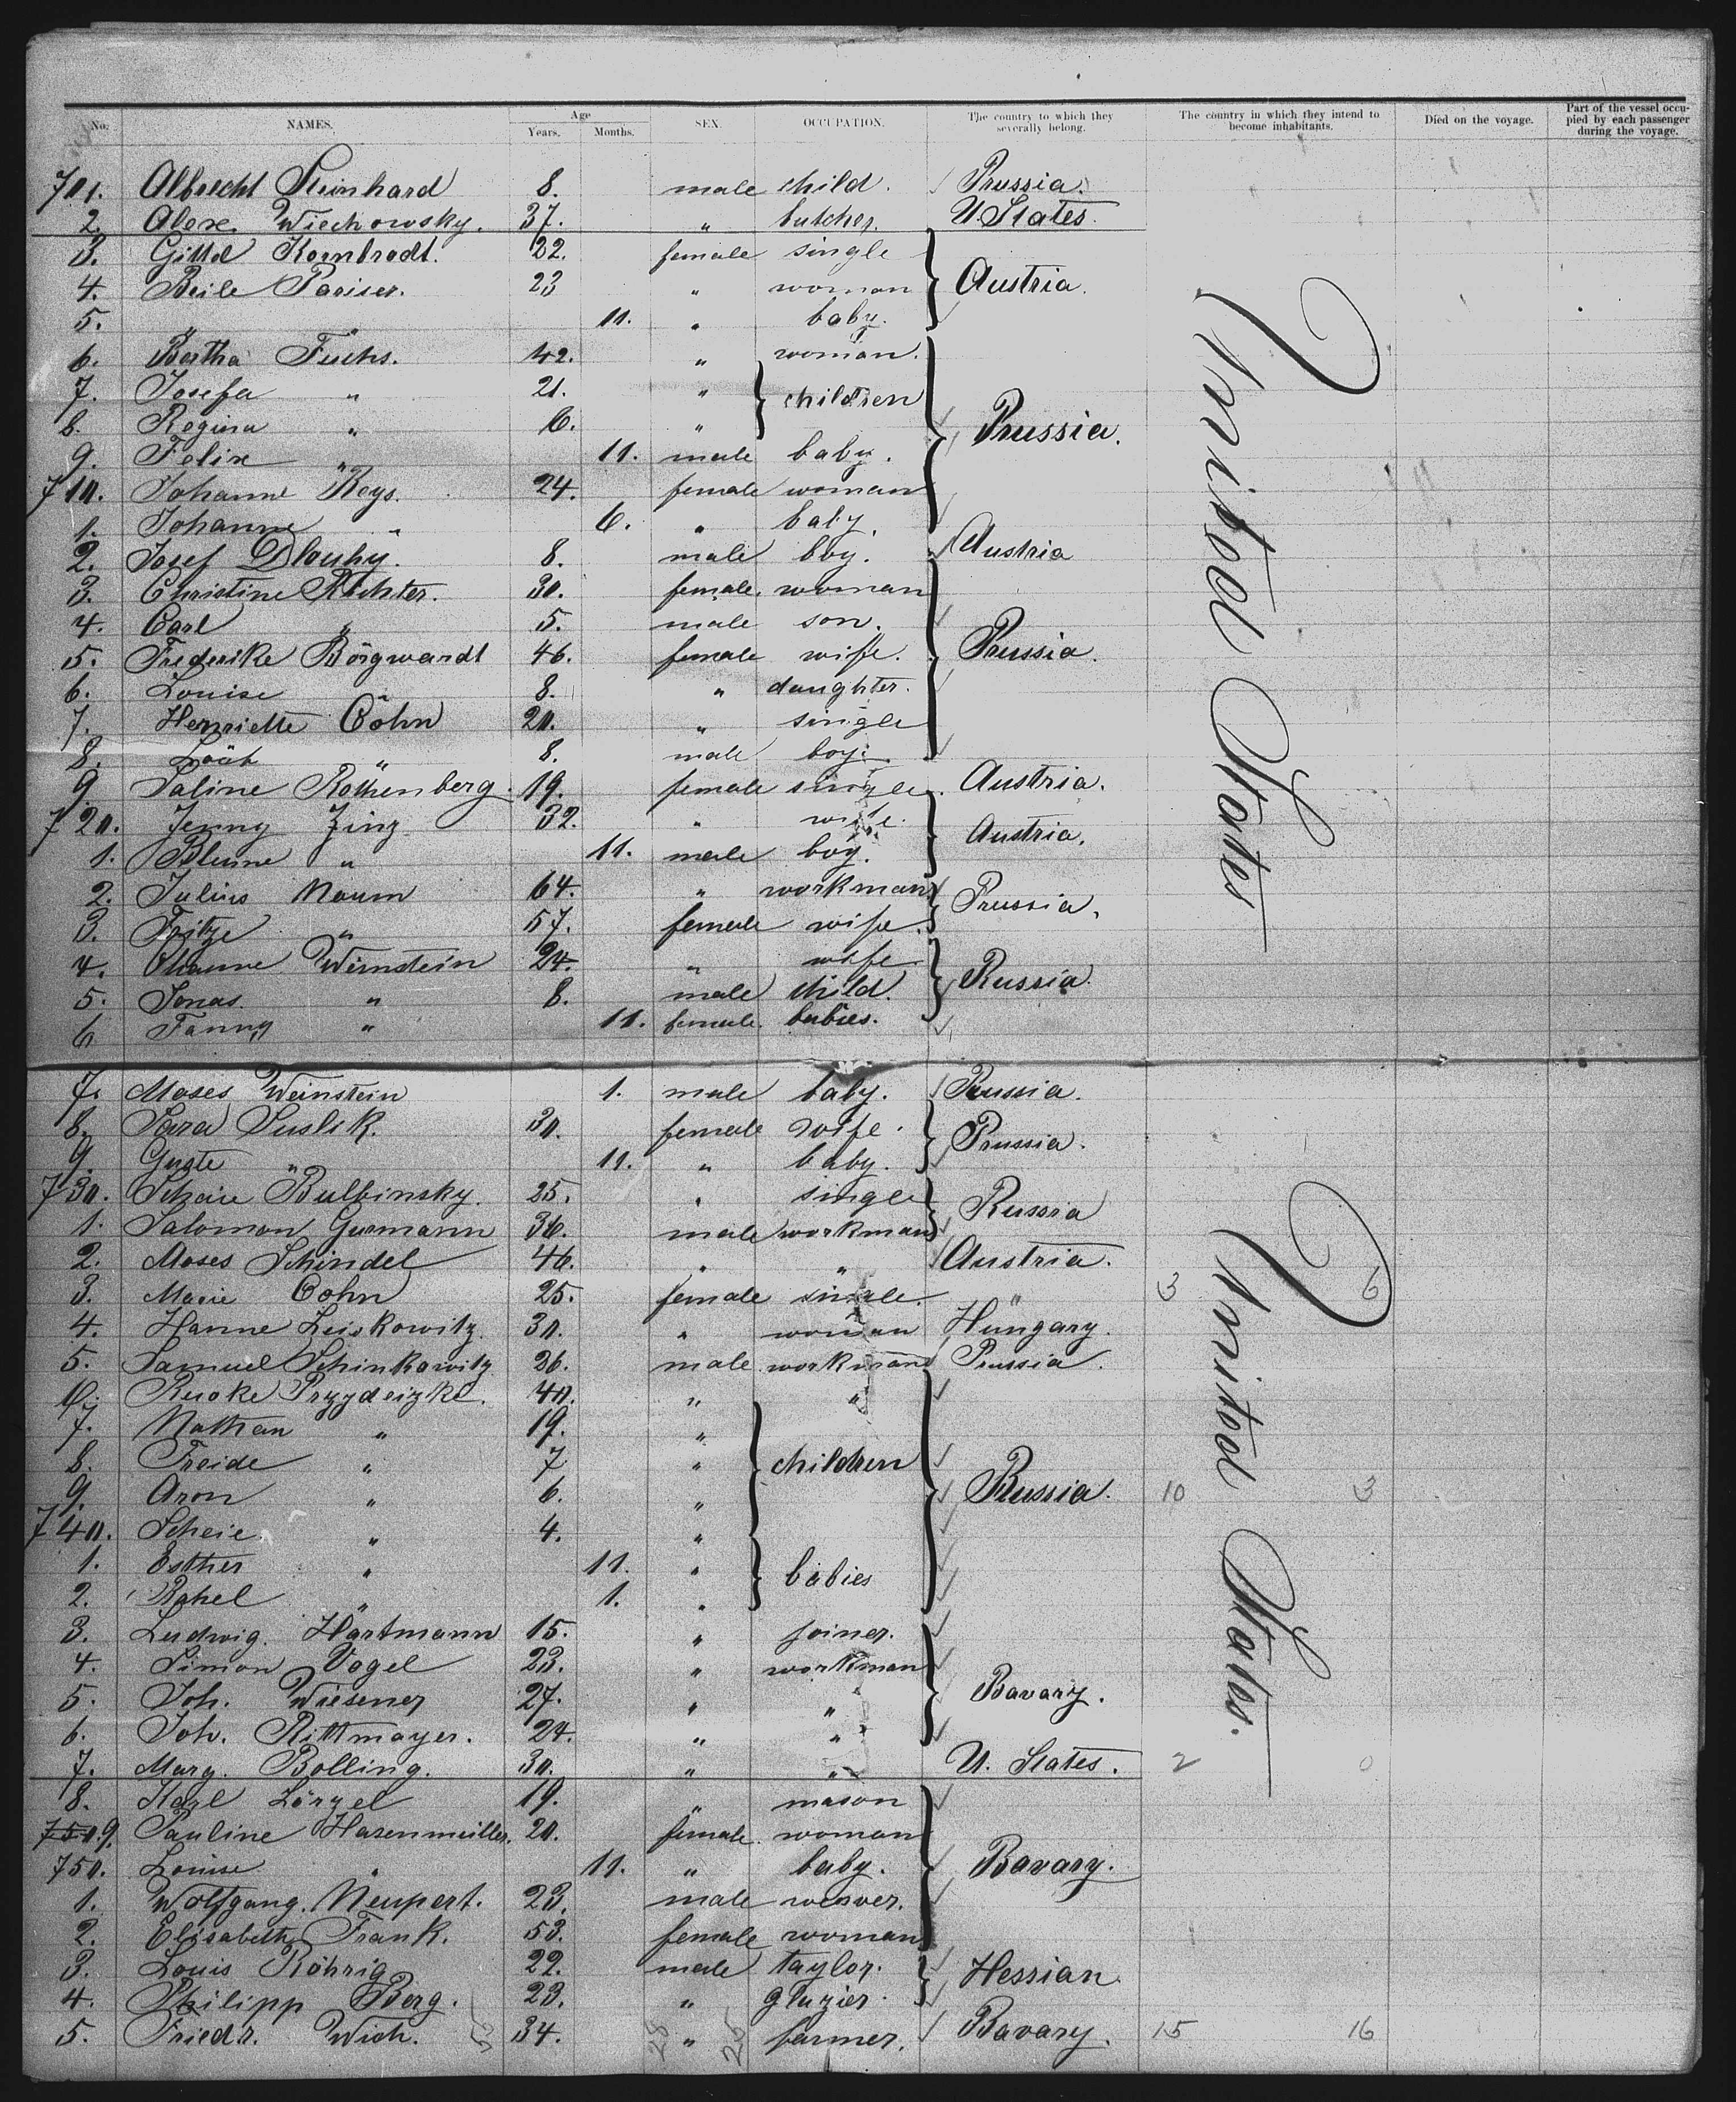 No. NAMES. Age Years. Months. SEX. OCCUPATION. The country to which they severally belong. The country in which they intend to become inhabitants. Died on the voyage. Part of the vessel occupied by each passenger during the voyage.
701. Albrecht Steinhard 8. male child. Prussia.
2. Alex. Wiechowsky. 37. " butcher. U. States.
3. Gittel Kornbrodt. 22. female single
4. Beile Pariser. 23 " woman Austria.
5. " " 11. " baby.
6. Bertha Fuchs. 42. " woman.
7. Josefa " 21. " children
8. Regina " 6. " Prussia.
9. Felix " 11. male baby.
710. Johanne Reys. 24. female woman
1. Johanne " 6. " baby.
2. Josef Dlouhy. 8. male boy. Austria
3. Christine Richter. 30. female. woman
4. Carl " 5. male son.
5. Frederike Borgwardt 46. female wife. Prussia.
6. Louise " 8. " daughter.
7. Henriette Cohn 20. " single
8. Löub " 8. male boy.
9. Saline Rothenberg. 19. female single. Austria.
720. Jenny Zinz 32. " wife. Austria.
1. Blume " 11. male boy.
2. Julius Naum 64. " workman Prussia.
3. Fritze " 57. female wife.
4. Channe Weinstein 24. " wife
5. Jonas " 8. male child. Russia.
6 Fanny " 11. female. babies.
7. Moses Weinstein 1. male baby. Russia.
8. Sara Suslik. 30. female wife. Prussia.
9. Guste " 11. " baby.
730. Scheie Bulbinsky. 25. " single Russia
1. Salomon Gurmann 36. male workman
2. Moses Schindel 46. " " Austria.
3. Marie Cohn 25. female single. " 3 6
4. Hanne Leiskowitz. 30. " woman Hungary.
5. Samuel Schinkowitz 26. male workmann Prussia.
6. Ruoke Przydeizke. 40. " "
7. Nathan " 19. "
8. Freide " 7 " children
9. Aron " 6. " Russia. 10 3
740. Scheie. " 4. "
1. Esther " 11. " babies
2. Rahel " 1. "
3. Ludwig. Hartmann 15. " joiner.
4. Simon Vogel 23. " workman
5. Joh. Wiesener 27. " " Bavary.
6. Joh. Rittmayer. 24. " "
7. Marg. Bolling. 30. " " U. States. 2 0
8. Karl Lörzel 19. " mason
750.9. Pauline Hasenmüller. 20. female. woman
750. Louise " 11. " baby. Bavary.
1. Wolfgang. Neupert. 23. male weaver.
2. Elisabeth Frank. 53. female woman
3. Louis Röhrig 22. male taylor. Hessian.
4. Philipp Berg. 23. " glazier.
5. Friedr. Wich. 34. " farmer. Bavary. 15 16
United States
United States.